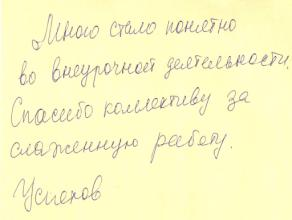 Много стало понятно
во внеурочной деятельности.
Спасибо коллективу за
слаженную работу.
Успехов